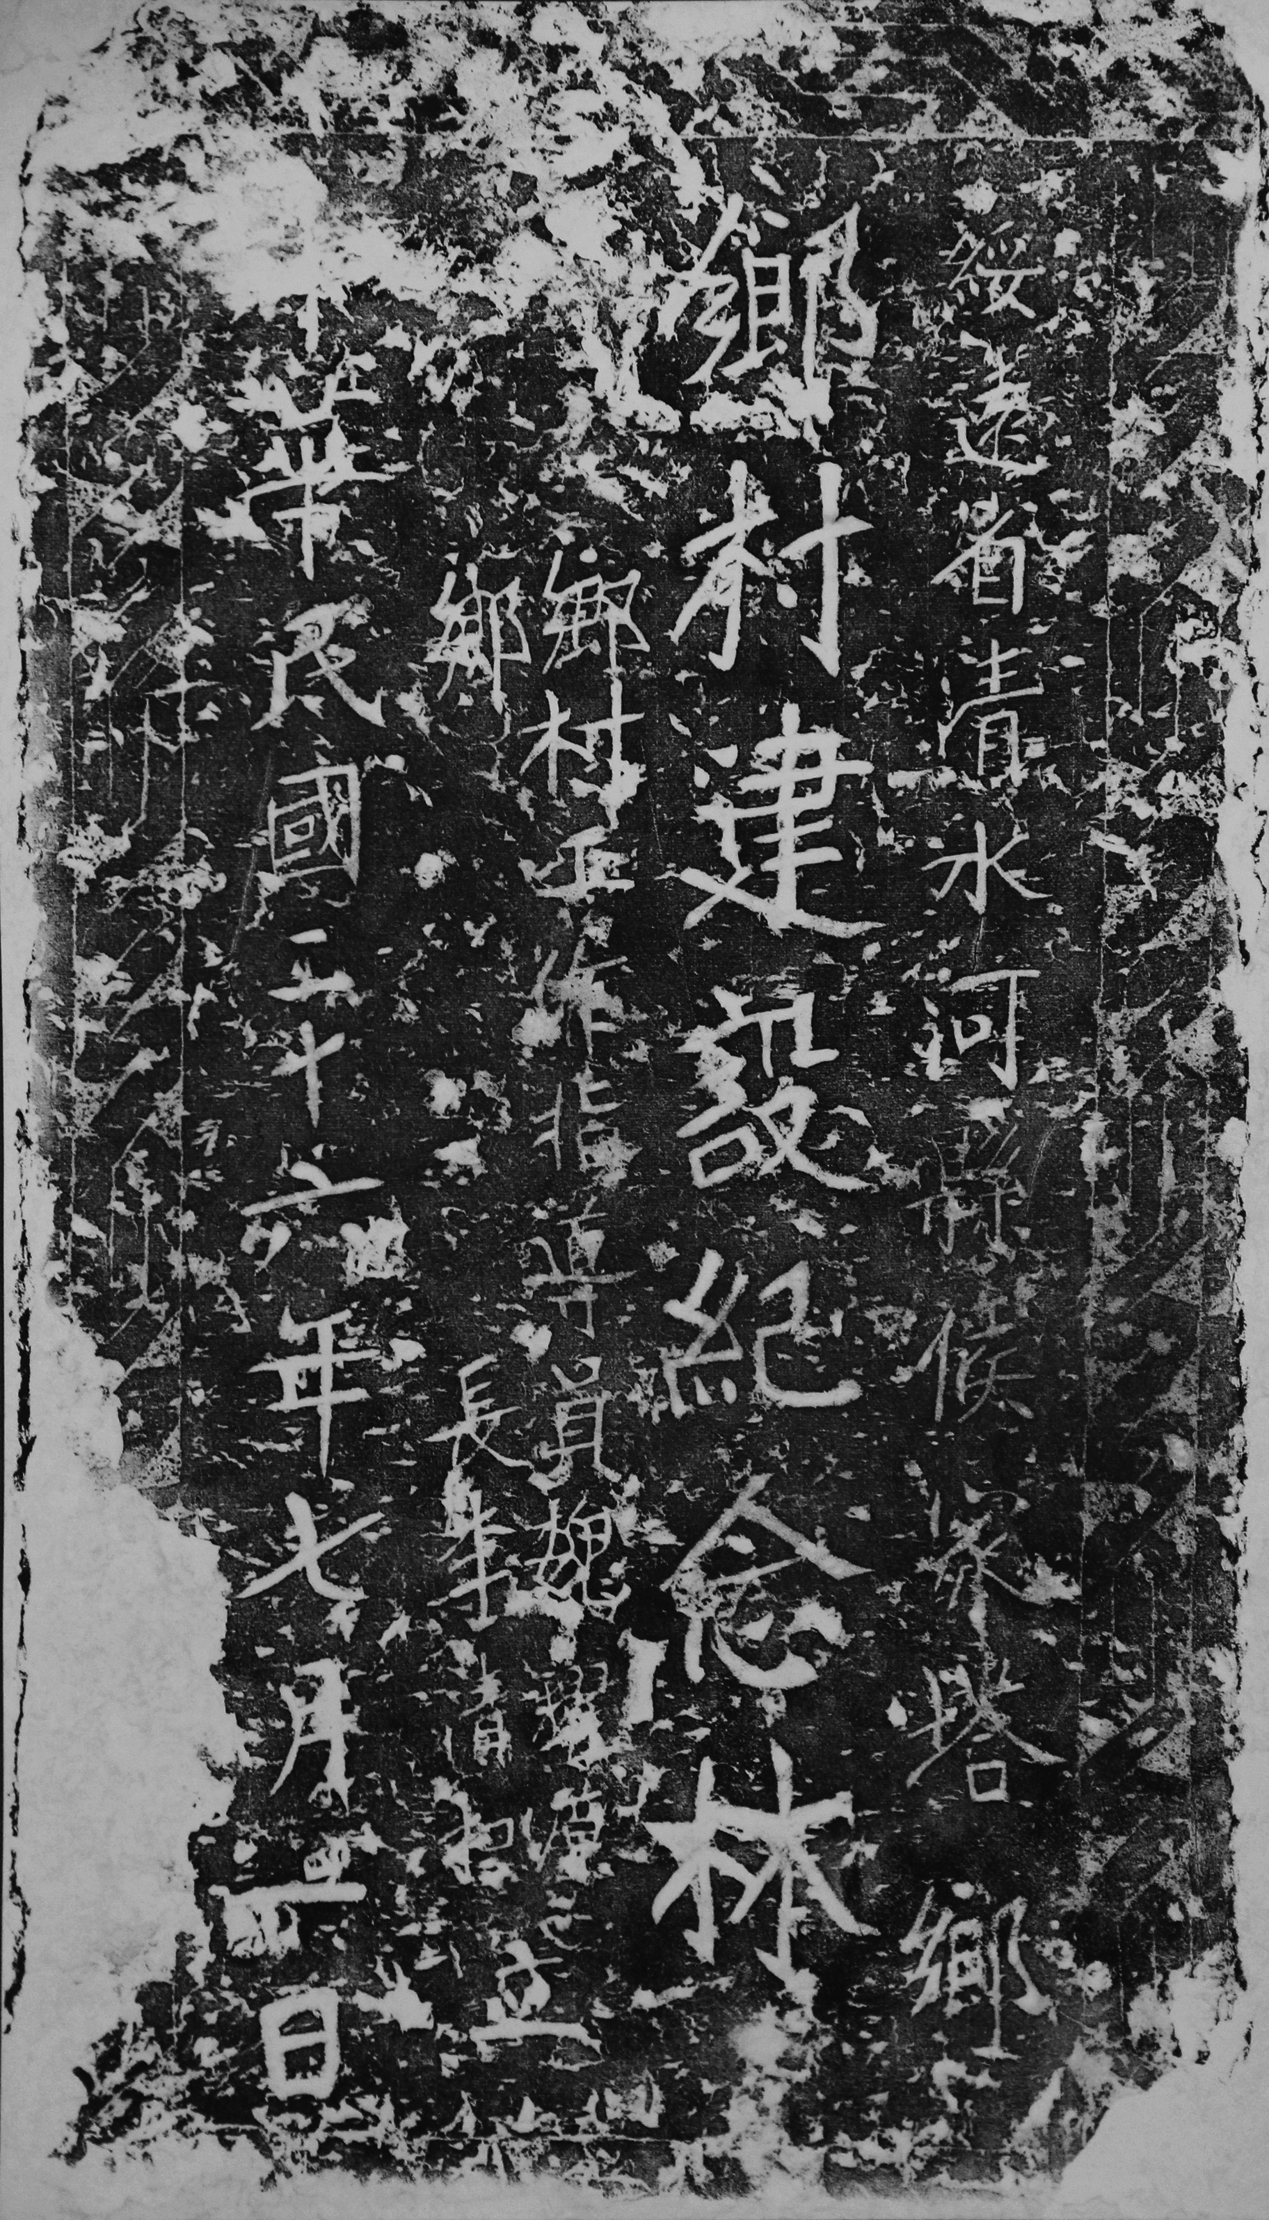 綏遠省清水河縣候家塔鄉
鄉村建設紀念林
鄉村工作指導員魏耀
鄉長李青和立
中華民國二十六年七月一日